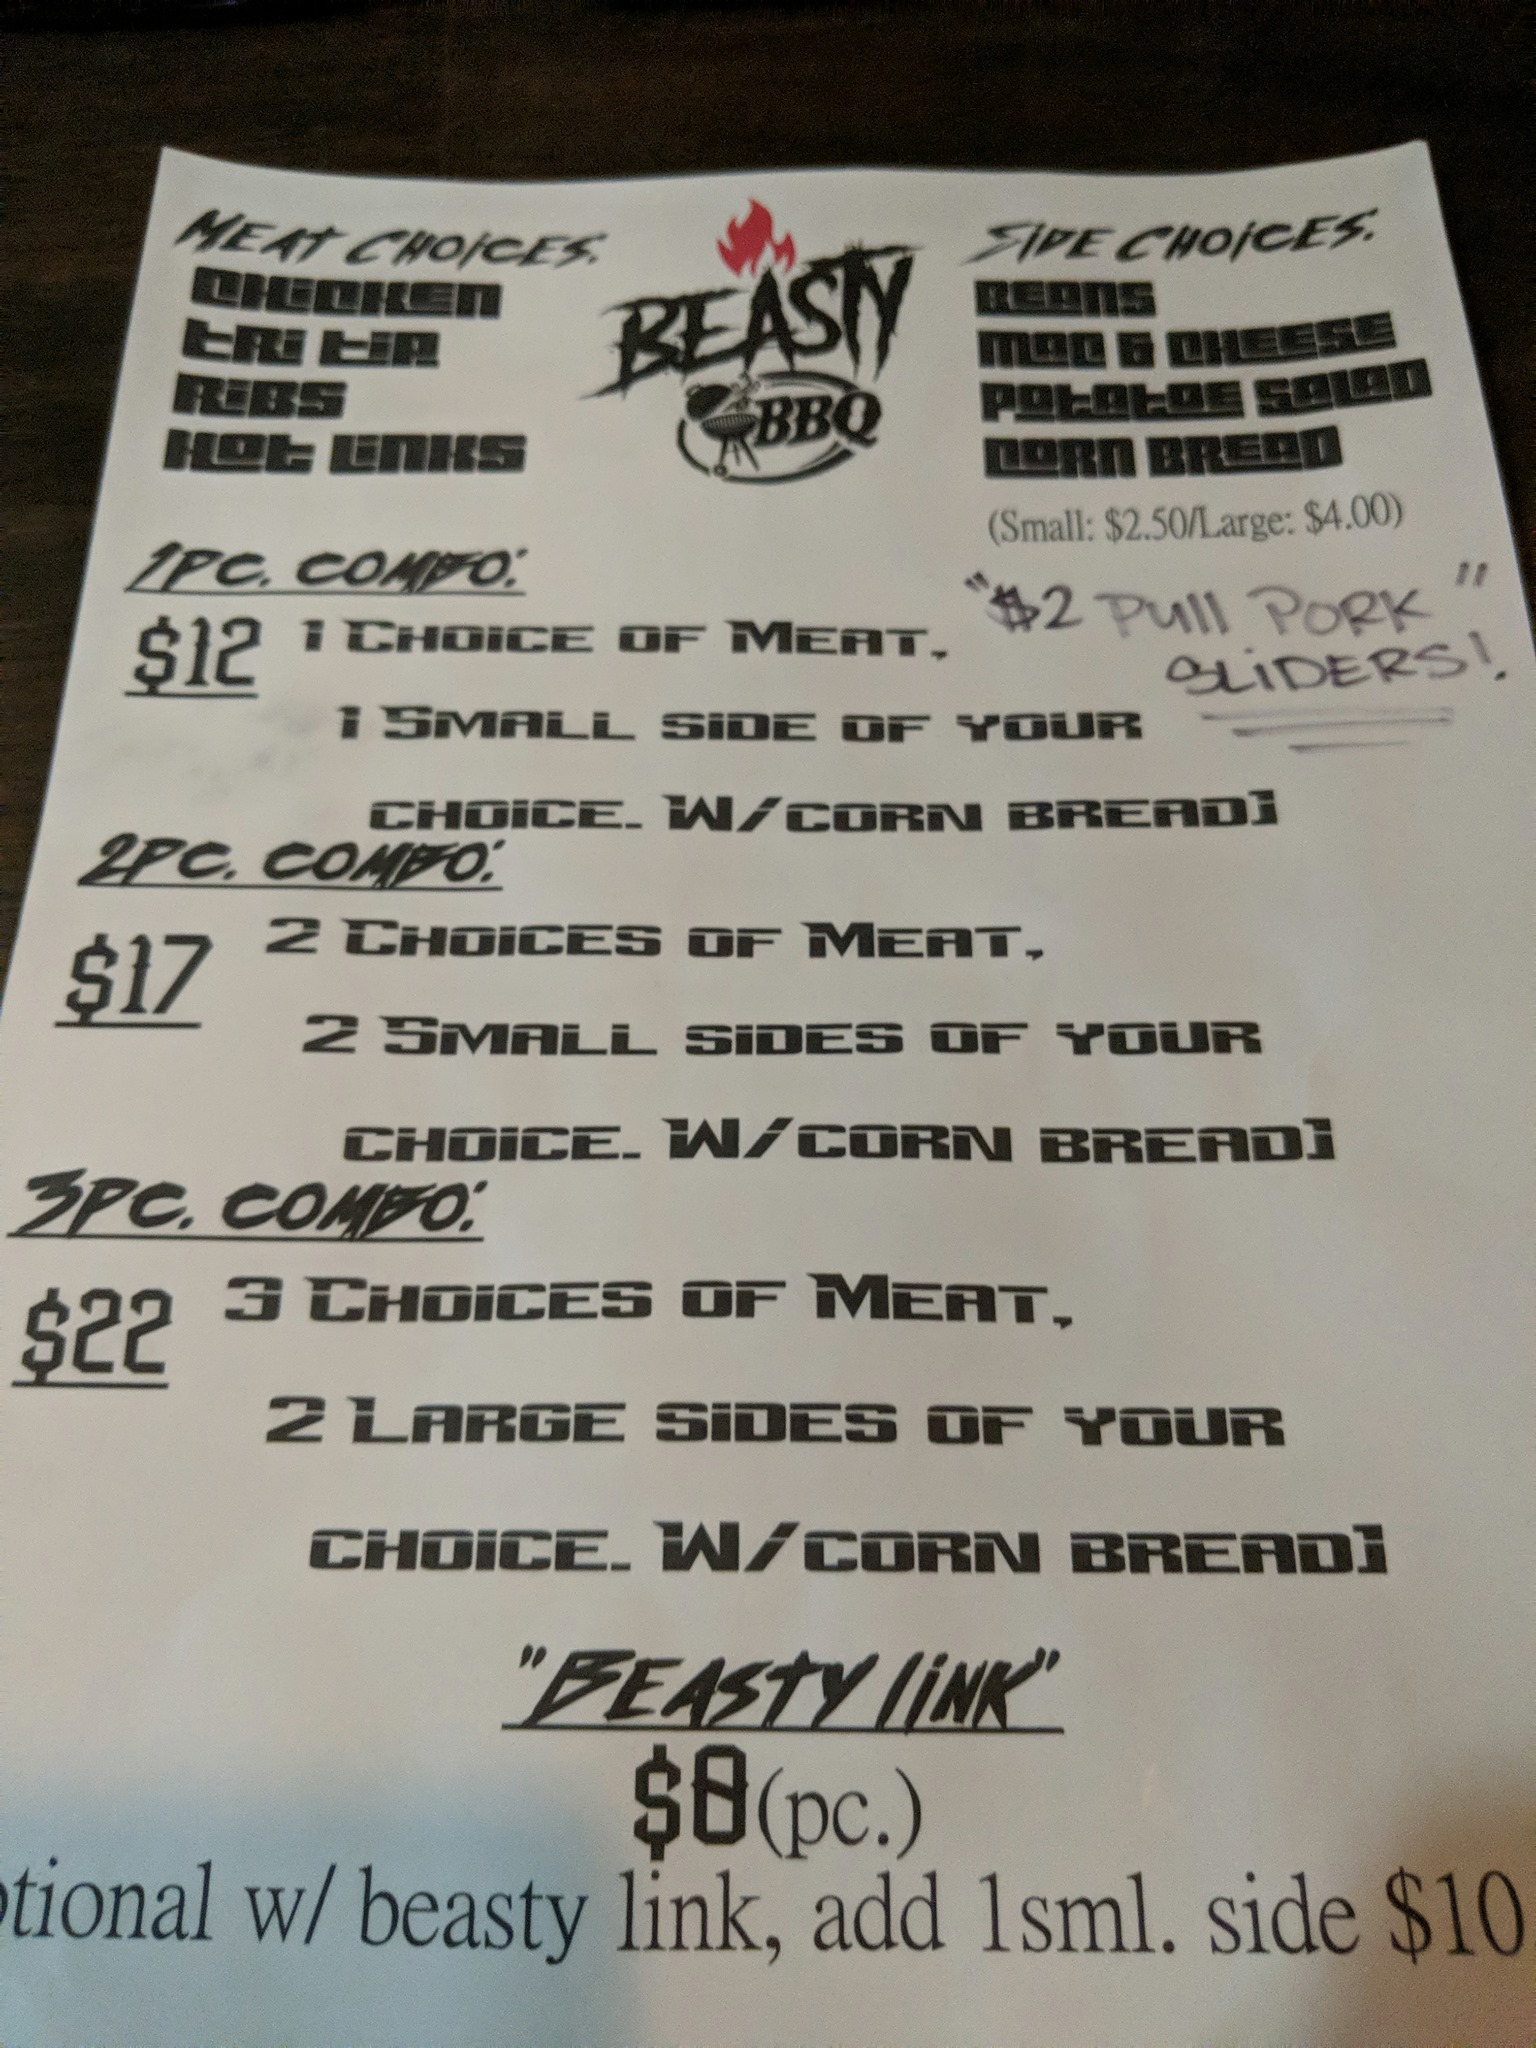 MEAT CHOICES.
CHICKEN
TRI TIP
RIBS
HOT LINKS
BEASTY
BBQ
SIDE CHOICES.
BEANS
MAC & CHEESE
POTATOE SALAD
CORN BREAD
(Small: $2.50/Large: $4.00)
"$2 Pull PORK"
SLiDERS!
1PC. COMBO:
$12 1 CHOICE OF MEAT,
1 SMALL SIDE OF YOUR
CHOICE. W/CORN BREAD]
2PC. COMBO:
$17 2 CHOICES OF MEAT,
2 SMALL SIDES OF YOUR
CHOICE. W/CORN BREAD]
3PC. COMBO:
$22 3 CHOICES OF MEAT,
2 LARGE SIDES OF YOUR
CHOICE. W/CORN BREAD]
"BEASTY LINK"
$8(pc.)
tional w/ beasty link, add 1sml. side $10